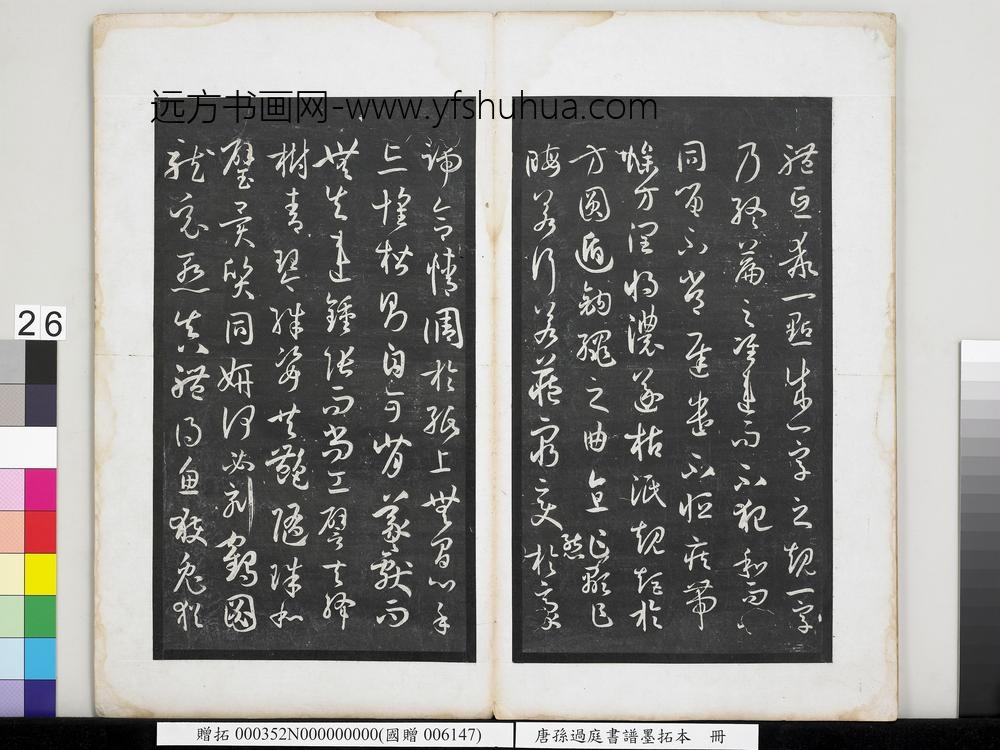 远方书画网-www.yfshuhua.com
體互乖一點成一字之規一字
乃終篇之準違而不犯和而不
同留不常遲遣不恒疾帶
燥方潤將濃遂枯泯規矩於
方圓遁鉤繩之曲直乍顯乍
晦若行若藏窮變態於豪
端合情調於紙上無間心手
忘懷楷則自可背羲獻而
無失違鍾張而尚工譬夫絳
樹青琴殊姿共豔隋珠和
璧異質同妍何必刻鶴圖
龍竟慚真體得魚獲兔猶
26
贈拓 000352N000000000(國贈 006147)
唐孫過庭書譜墨拓本 冊